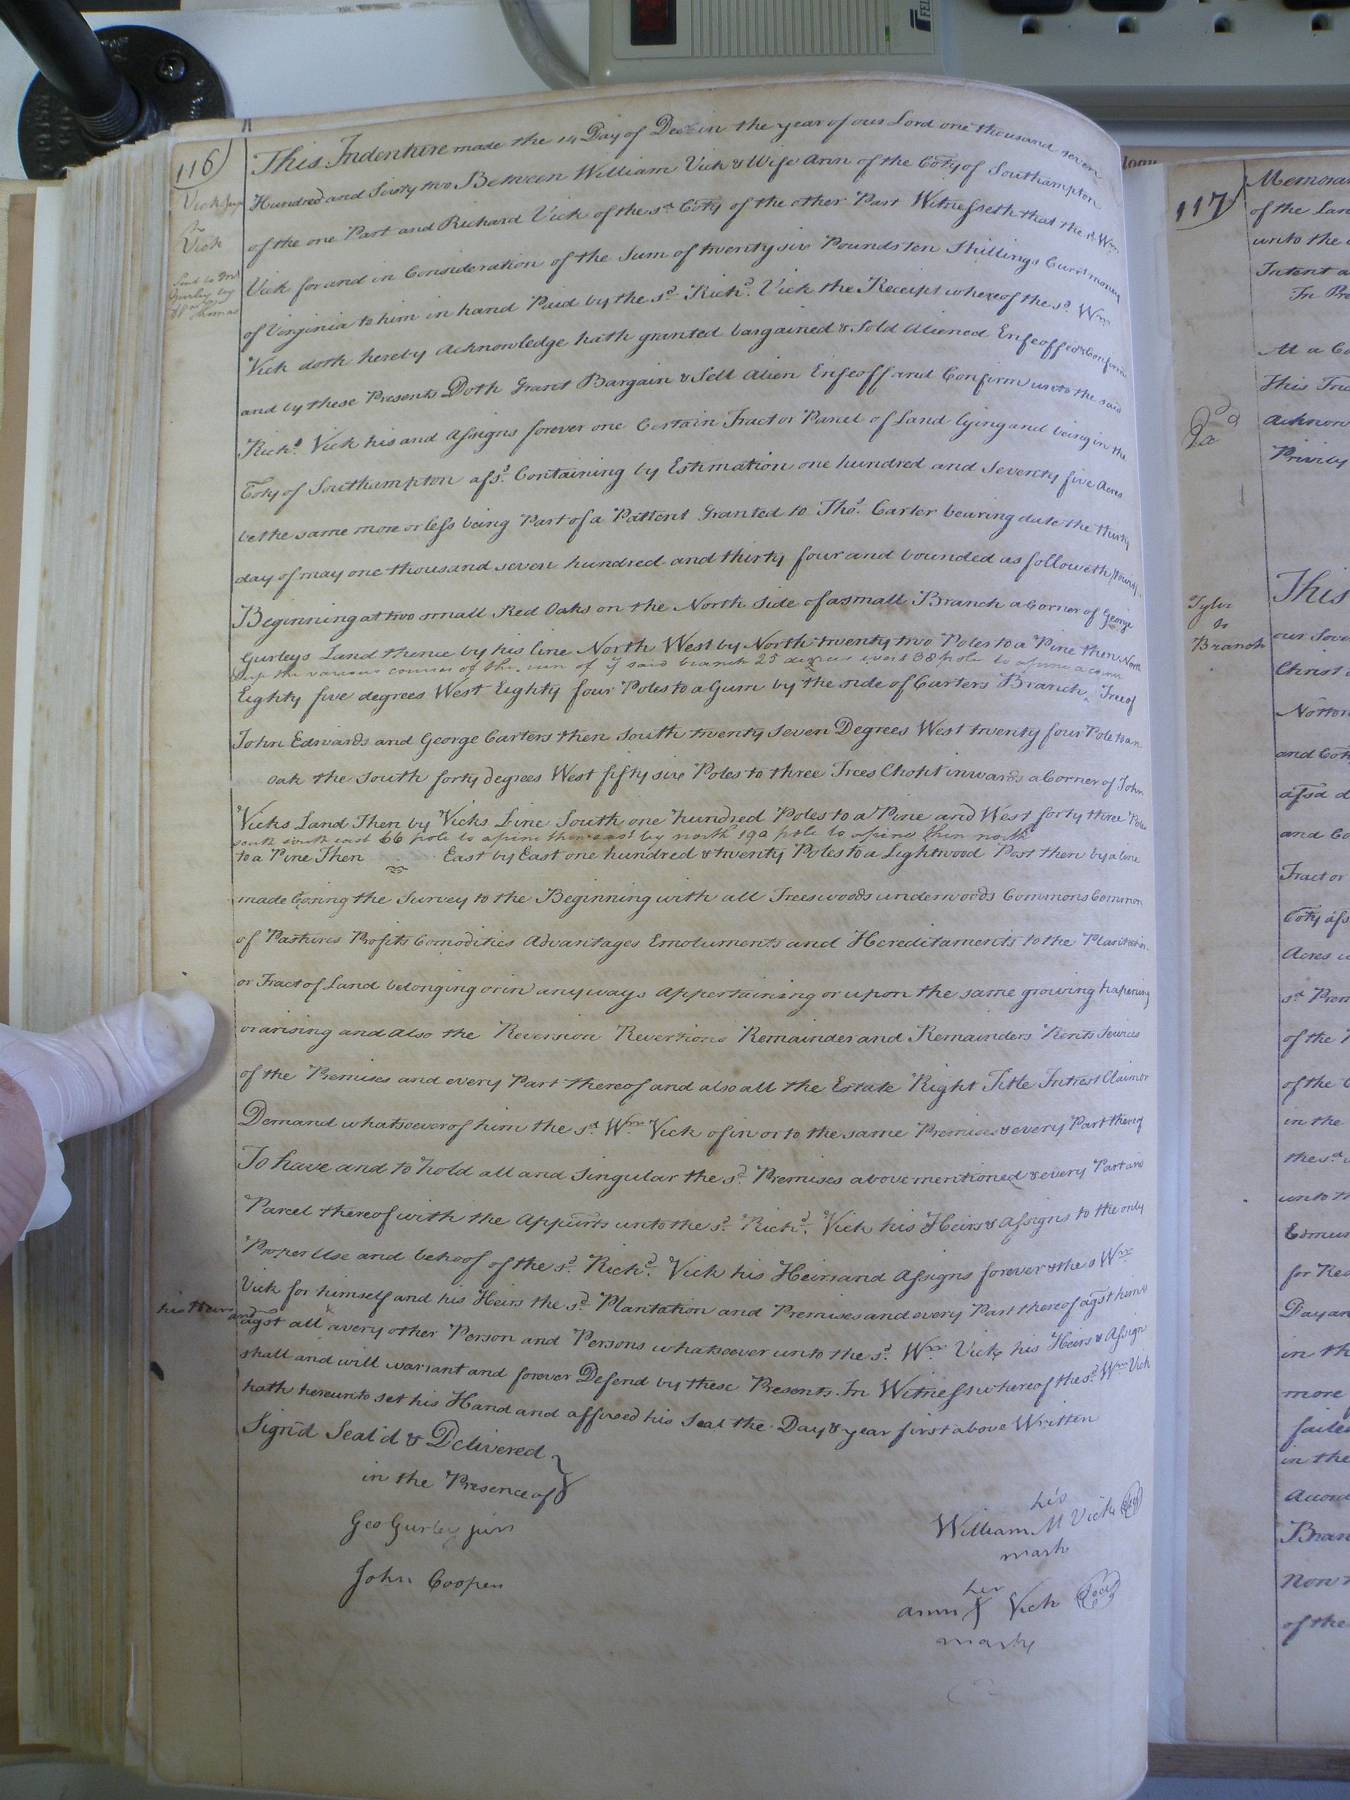 116
Vick
to
Vick
This Indenture made the 14 Day of Decr in the year of our Lord one thousand seven
Hundred and Sixty two Between William Vick & Wife Ann of the Coty of Southampton
of the one Part and Richard Vick of the sd Coty of the other Part Witnesseth that the sd Wm
Vick for and in Consideration of the Sum of twenty six Pounds ten Shillings Currt money
of Virginia to him in hand Paid by the sd Richd Vick the Receipt whereof the sd Wm
Vick doth hereby Acknowledge hath granted bargained & Sold Aliened Enfeoffed & Confirm
and by these Presents Doth Grant Bargain & Sell Alien Enfeoff and Confirm unto the said
Richd Vick his and Assigns forever one Certain Tract or Parcel of Land lying and being in the
Coty of Southampton afsd Containing by Estimation one hundred and Seventy five Acres
be the same more or less being Part of a Pattent Granted to Thos Carter bearing date the thirty
day of may one thousand seven hundred and thirty four and bounded as followeth
Beginning at two small Red Oaks on the North side of a small Branch a Corner of George
Gurleys Land thence by his line North West by North twenty two Poles to a Pine then North
up the various courses of the run of ye said branch 25 degrees west 38 pole to a pine a corner
Eighty five degrees West Eighty four Poles to a Gum by the side of Carters Branch Tree of
John Edwards and George Carters then South twenty Seven Degrees West twenty four Pole to an
oak the South forty degrees West fifty six Poles to three Trees Chopt inwards a Corner of John
Vicks Land Then by Vicks Line South one hundred Poles to a Pine and West forty three Poles
south south east 66 pole to a pine then east by north 190 pole to a pine then north
to a Pine Then East by East one hundred & twenty Poles to a Lightwood Post then by a line
made Cosing the Survey to the Beginning with all Trees woods underwoods Commons Common
of Pastures Profits Comodities Advantages Emoluments and Hereditaments to the Plantation
or Tract of Land belonging or in anyways Appertaining or upon the same growing hapening
or arising and also the Reversion Revertions Remainder and Remainders Rents Services
of the Premises and every Part thereof and also all the Estate Right Title Intrest Claim or
Demand whatsoever of him the sd Wm Vick of in or to the same Premises & every Part thereof
To have and to hold all and Singular the sd Premises above mentioned & every Part and
Parcel thereof with the Appurts unto the sd Richd Vick his Heirs & Assigns to the only
Proper Use and behoof of the sd Richd Vick his Heirs and Assigns forever & the s Wm
Vick for himself and his Heirs the sd Plantation and Premises and every Part thereof agst him &
his Heirs and agst all & every other Person and Persons whatsoever unto the sd Wm Vick his Heirs & Assigns
shall and will warrant and forever Defend by these Presents In Witness whereof the sd Wm Vick
hath hereunto set his Hand and affixed his Seal the Day & year first above Written
Sign'd Seal'd & Delivered
in the Presence of
Geo Gurley junr
John Cooper
his
William M Vick
mark
her
Ann Vick
mark
117
Memoran
of the Lan
unto the
Intent a
At a Co
This In
Acknow
Privily
Tyler
to
Branch
This
our Sove
Christ
Norton
and Coty
afsd d
and Co
Tract or
Coty afs
Acres
sd Prem
of the
of the
in the
the sd
unto th
Edmun
for
Day an
in th
more
in the
Accor
Bran
Now
of the